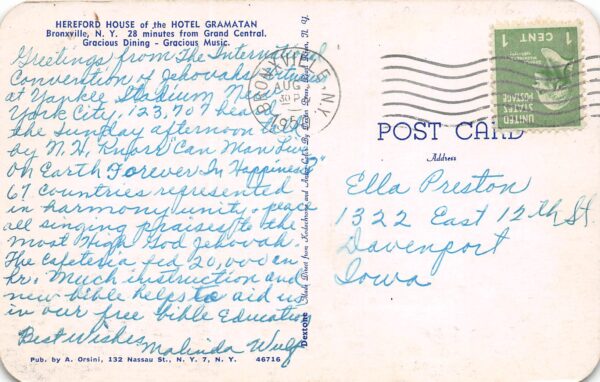 HEREFORD HOUSE of the HOTEL GRAMATAN
Bronxville, N. Y. 28 minutes from Grand Central.
Gracious Dining - Gracious Music.
Greetings from The International
Convention of Jehovahs
at Yankee Stadium New
York City, 123,707 heard
the Sunday afternoon talk
by N. H. Knorr "Can Man Live
on Earth Forever In Happiness?"
67 countries represented
in harmony unity - peace
all singing praises to the
most High God Jehovah.
The cafeteria fed 20,000 an
hr. Much instruction and
new bible helps to aid us
in our free bible Education
Best Wishes
Malinda
Pub. by A. Orsini, 132 Nassau St., N. Y. 7, N. Y. 46716
Dextone Made Direct from Kodachrome and Ansco Color By Dexter Press, Pearl River, N. Y.
BRONXVILLE, N.Y.
AUG
1 CENT 1
UNITED
STATES
POSTAGE
POST CARD
Address
Ella Preston
1322 East 12th St.
Davenport
Iowa